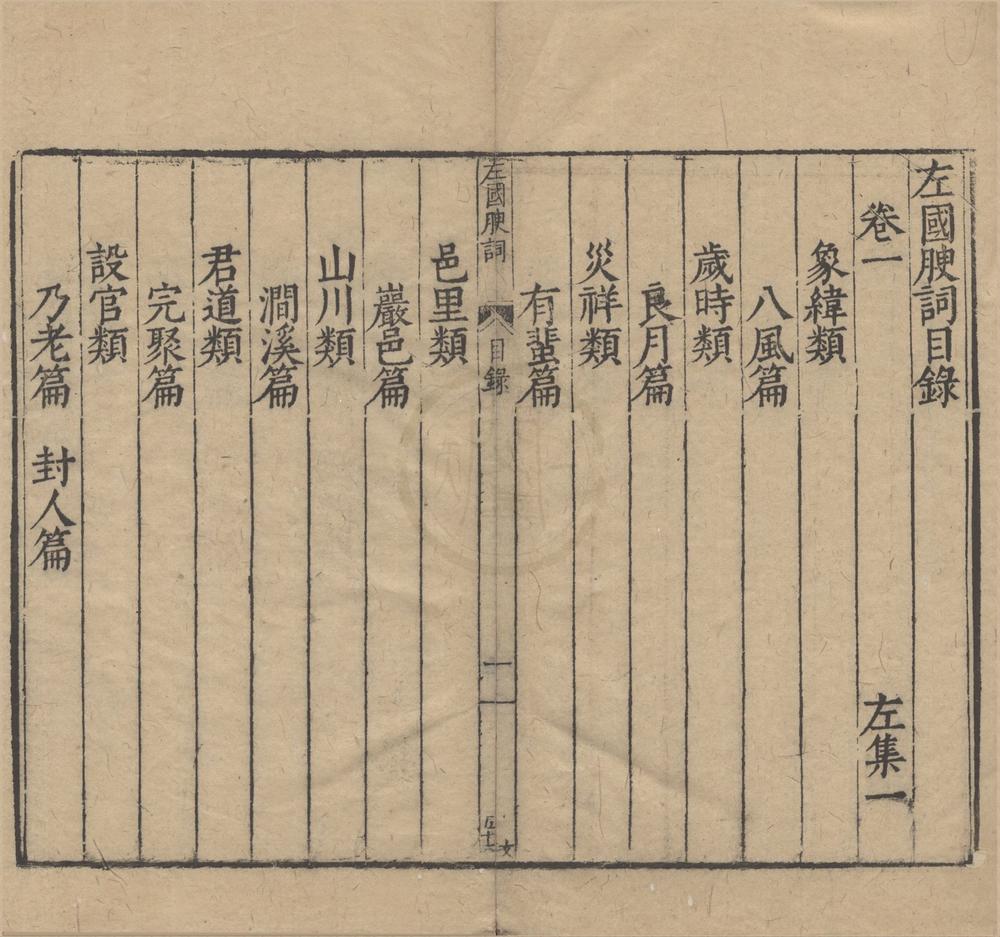 左國腴詞目錄
卷一 左集一
象緯類
八風篇
歲時類
良月篇
災祥類
有蜚篇
左國腴詞 目錄 一
邑里類
巖邑篇
山川類
澗溪篇
君道類
完聚篇
設官類
乃老篇 封人篇